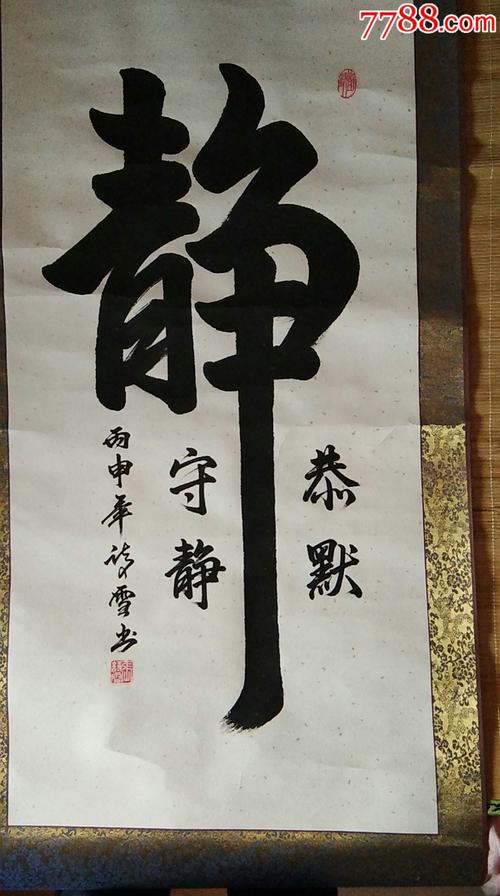 7788.com
静
恭默
守静
丙申年诗雪书